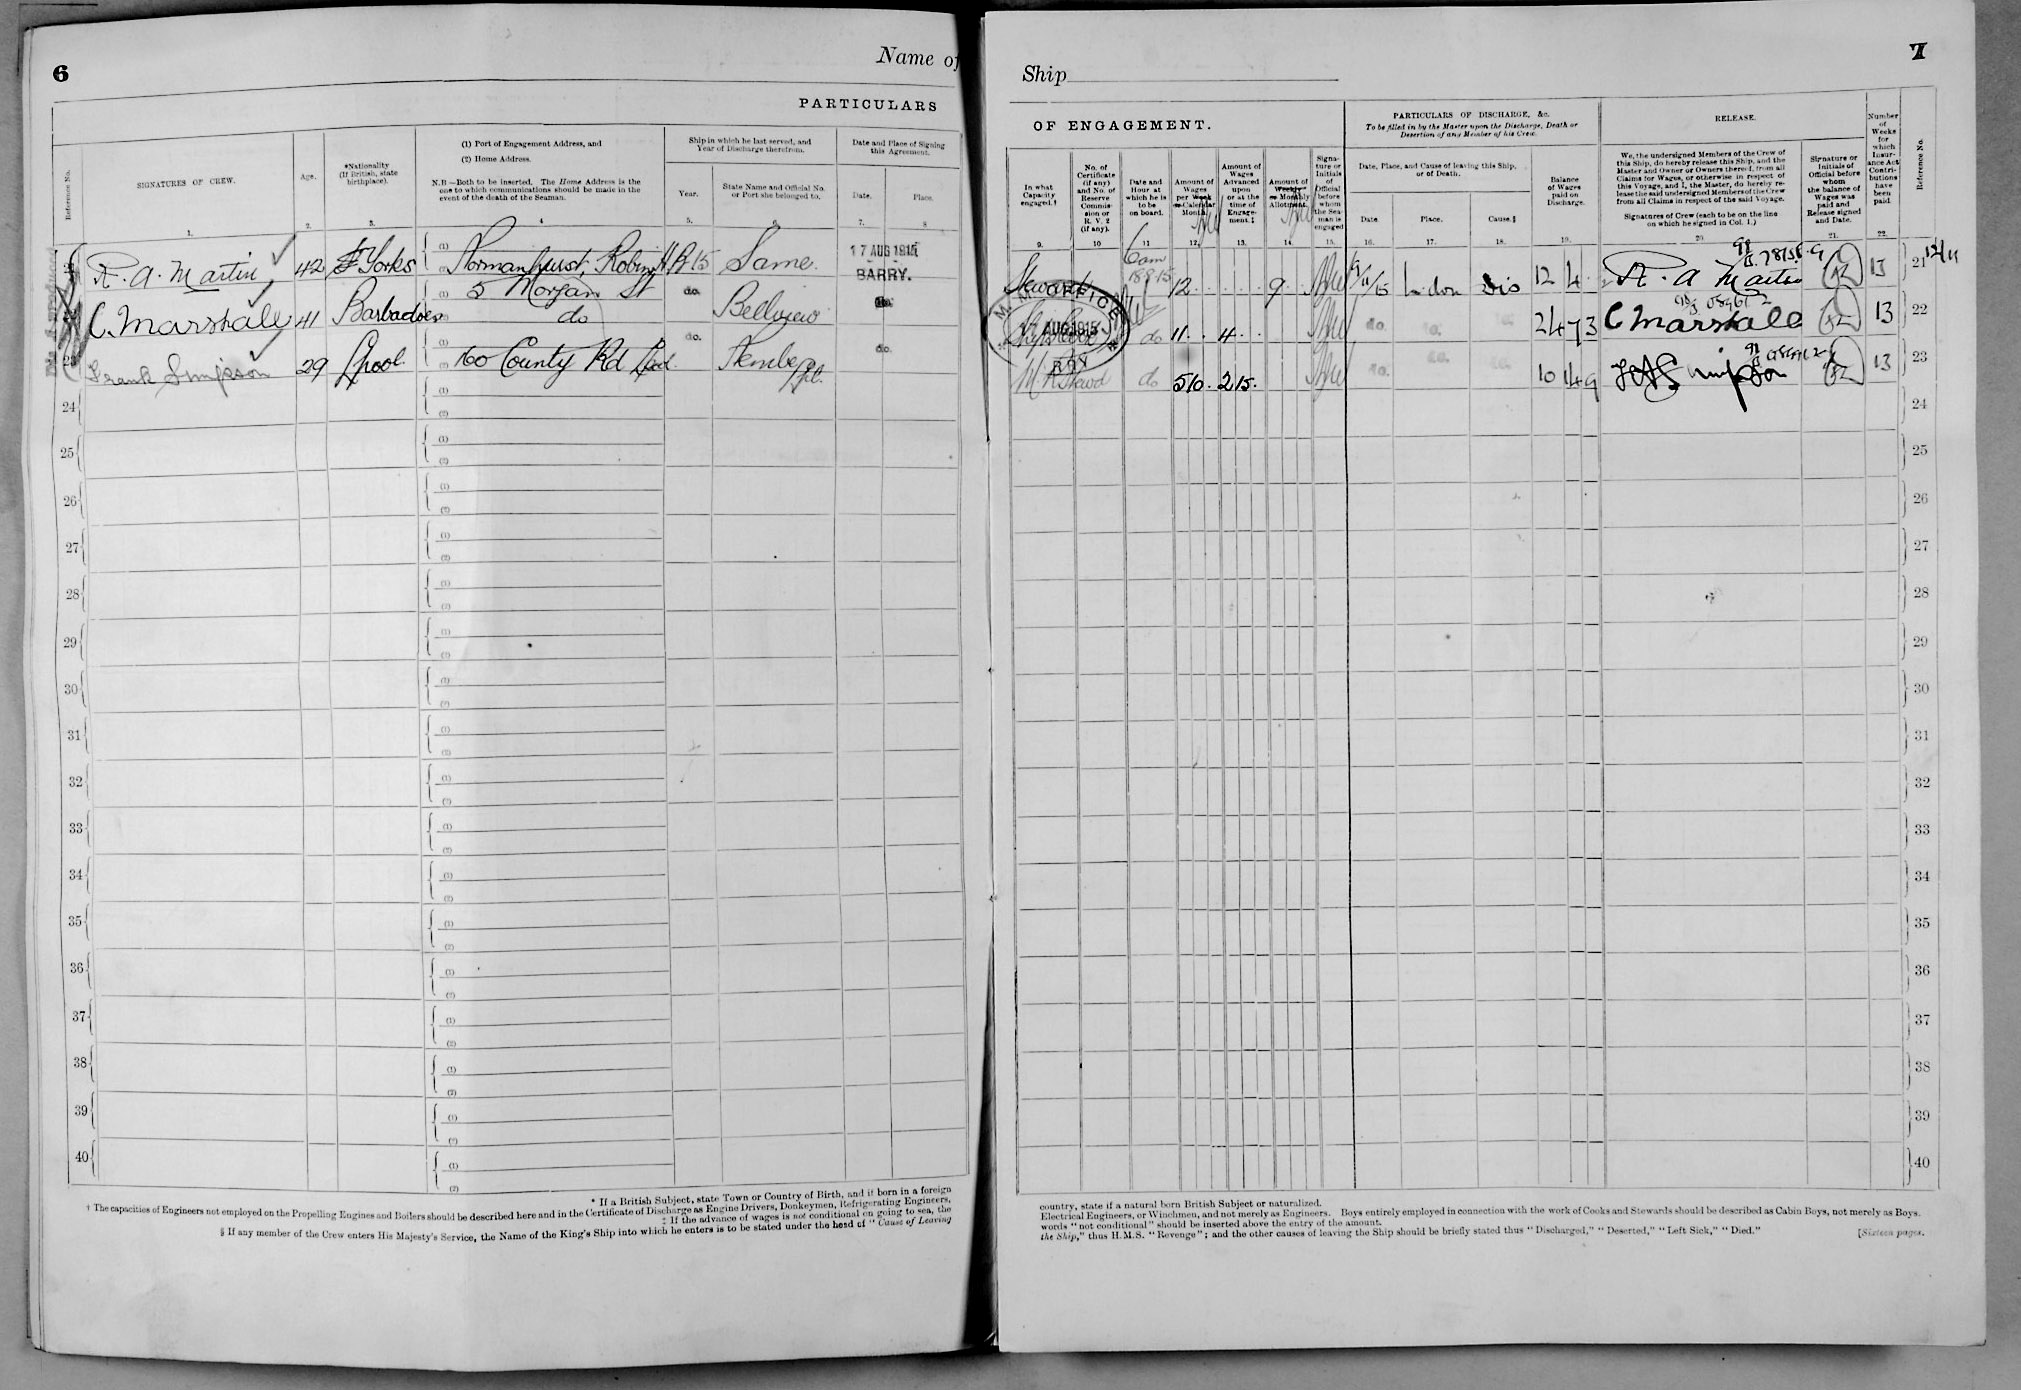 6
Name of
PARTICULARS
Reference No.
SIGNATURES OF CREW.
Age.
*Nationality
(If British, state
birthplace).
(1) Port of Engagement Address, and
(2) Home Address.
N.B.—Both to be inserted. The Home Address is the
one to which communications should be made in the
event of the death of the Seaman.
Ship in which he last served, and
Year of Discharge therefrom.
Year.
State Name and Official No.
or Port she belonged to.
Date and Place of Signing
this Agreement.
Date.
Place.
1.
2.
3.
4
5.
6.
7.
8
R. A. Martin 42 Yorks
(1) Normanhurst, Robin
15 Same. 17 AUG 1915
BARRY.
C. Marshall 41 Barbadoes
(1) 5 Morgan St
(2) do
do. Bellview
23 Frank Simpson 29 Lpool
(1)
(2) 160 County Rd Lpool.
do. do.
24 (1)
(2)
25 (1)
(2)
26 (1)
(2)
27 (1)
(2)
28 (1)
(2)
29 (1)
(2)
30 (1)
(2)
31 (1)
(2)
32 (1)
(2)
33 (1)
(2)
34 (1)
(2)
35 (1)
(2)
36 (1)
(2)
37 (1)
(2)
38 (1)
(2)
39 (1)
(2)
40 (1)
(2)
* If a British Subject, state Town or Country of Birth, and if born in a foreign
† The capacities of Engineers not employed on the Propelling Engines and Boilers should be described here and in the Certificate of Discharge as Engine Drivers, Donkeymen, Refrigerating Engineers,
‡ If the advance of wages is not conditional on going to sea, the
§ If any member of the Crew enters His Majesty's Service, the Name of the King's Ship into which he enters is to be stated under the head of "Cause of Leaving
7
Ship
OF ENGAGEMENT.
In what
Capacity
engaged.†
No. of
Certificate
(if any)
and No. of
Reserve
Commis-
sion or
R. V. 2
(if any).
Date and
Hour at
which he is
to be
on board.
Amount of
Wages
per Week
or Calendar
Month.
Amount of
Wages
Advanced
upon
or at the
time of
Engage-
ment.‡
Amount of
Weekly
or Monthly
Allotment.
Signa-
ture or
Initials
of
Official
before
whom
the Sea-
man is
engaged
PARTICULARS OF DISCHARGE, &c.
To be filled in by the Master upon the Discharge, Death or
Desertion of any Member of his Crew.
Date, Place, and Cause of leaving this Ship,
or of Death.
Date.
Place.
Cause.§
Balance
of Wages
paid on
Discharge.
RELEASE.
We, the undersigned Members of the Crew of
this Ship, do hereby release this Ship, and the
Master and Owner or Owners thereof, from all
Claims for Wages, or otherwise in respect of
this Voyage, and I, the Master, do hereby re-
lease the said undersigned Members of the Crew
from all Claims in respect of the said Voyage.
Signatures of Crew (each to be on the line
on which he signed in Col. 1.)
Signature or
Initials of
Official before
whom
the balance of
Wages was
paid and
Release signed
and Date.
Number
of
Weeks
for
which
Insur-
ance Act
Contri-
butions
have
been
paid.
Reference No.
9.
10
11
12.
13.
14.
15.
16.
17.
18.
19.
20.
21.
22.
6am
Steward 18.8.15 12 9 London Dis 12 4 R. A Martin 13 21
M. M. OFFICE
AUG 1915
do 11 4 do. do. 24 7 3 C Marshall 13 22
do 5 10 2 15 do. do. 10 14 9 Simpson 13 23
24
25
26
27
28
29
30
31
32
33
34
35
36
37
38
39
40
country, state if a natural born British Subject or naturalized.
Electrical Engineers, or Winchmen, and not merely as Engineers. Boys entirely employed in connection with the work of Cooks and Stewards should be described as Cabin Boys, not merely as Boys.
words "not conditional" should be inserted above the entry of the amount.
the Ship," thus H.M.S. "Revenge"; and the other causes of leaving the Ship should be briefly stated thus "Discharged," "Deserted," "Left Sick," "Died."
[Sixteen pages.